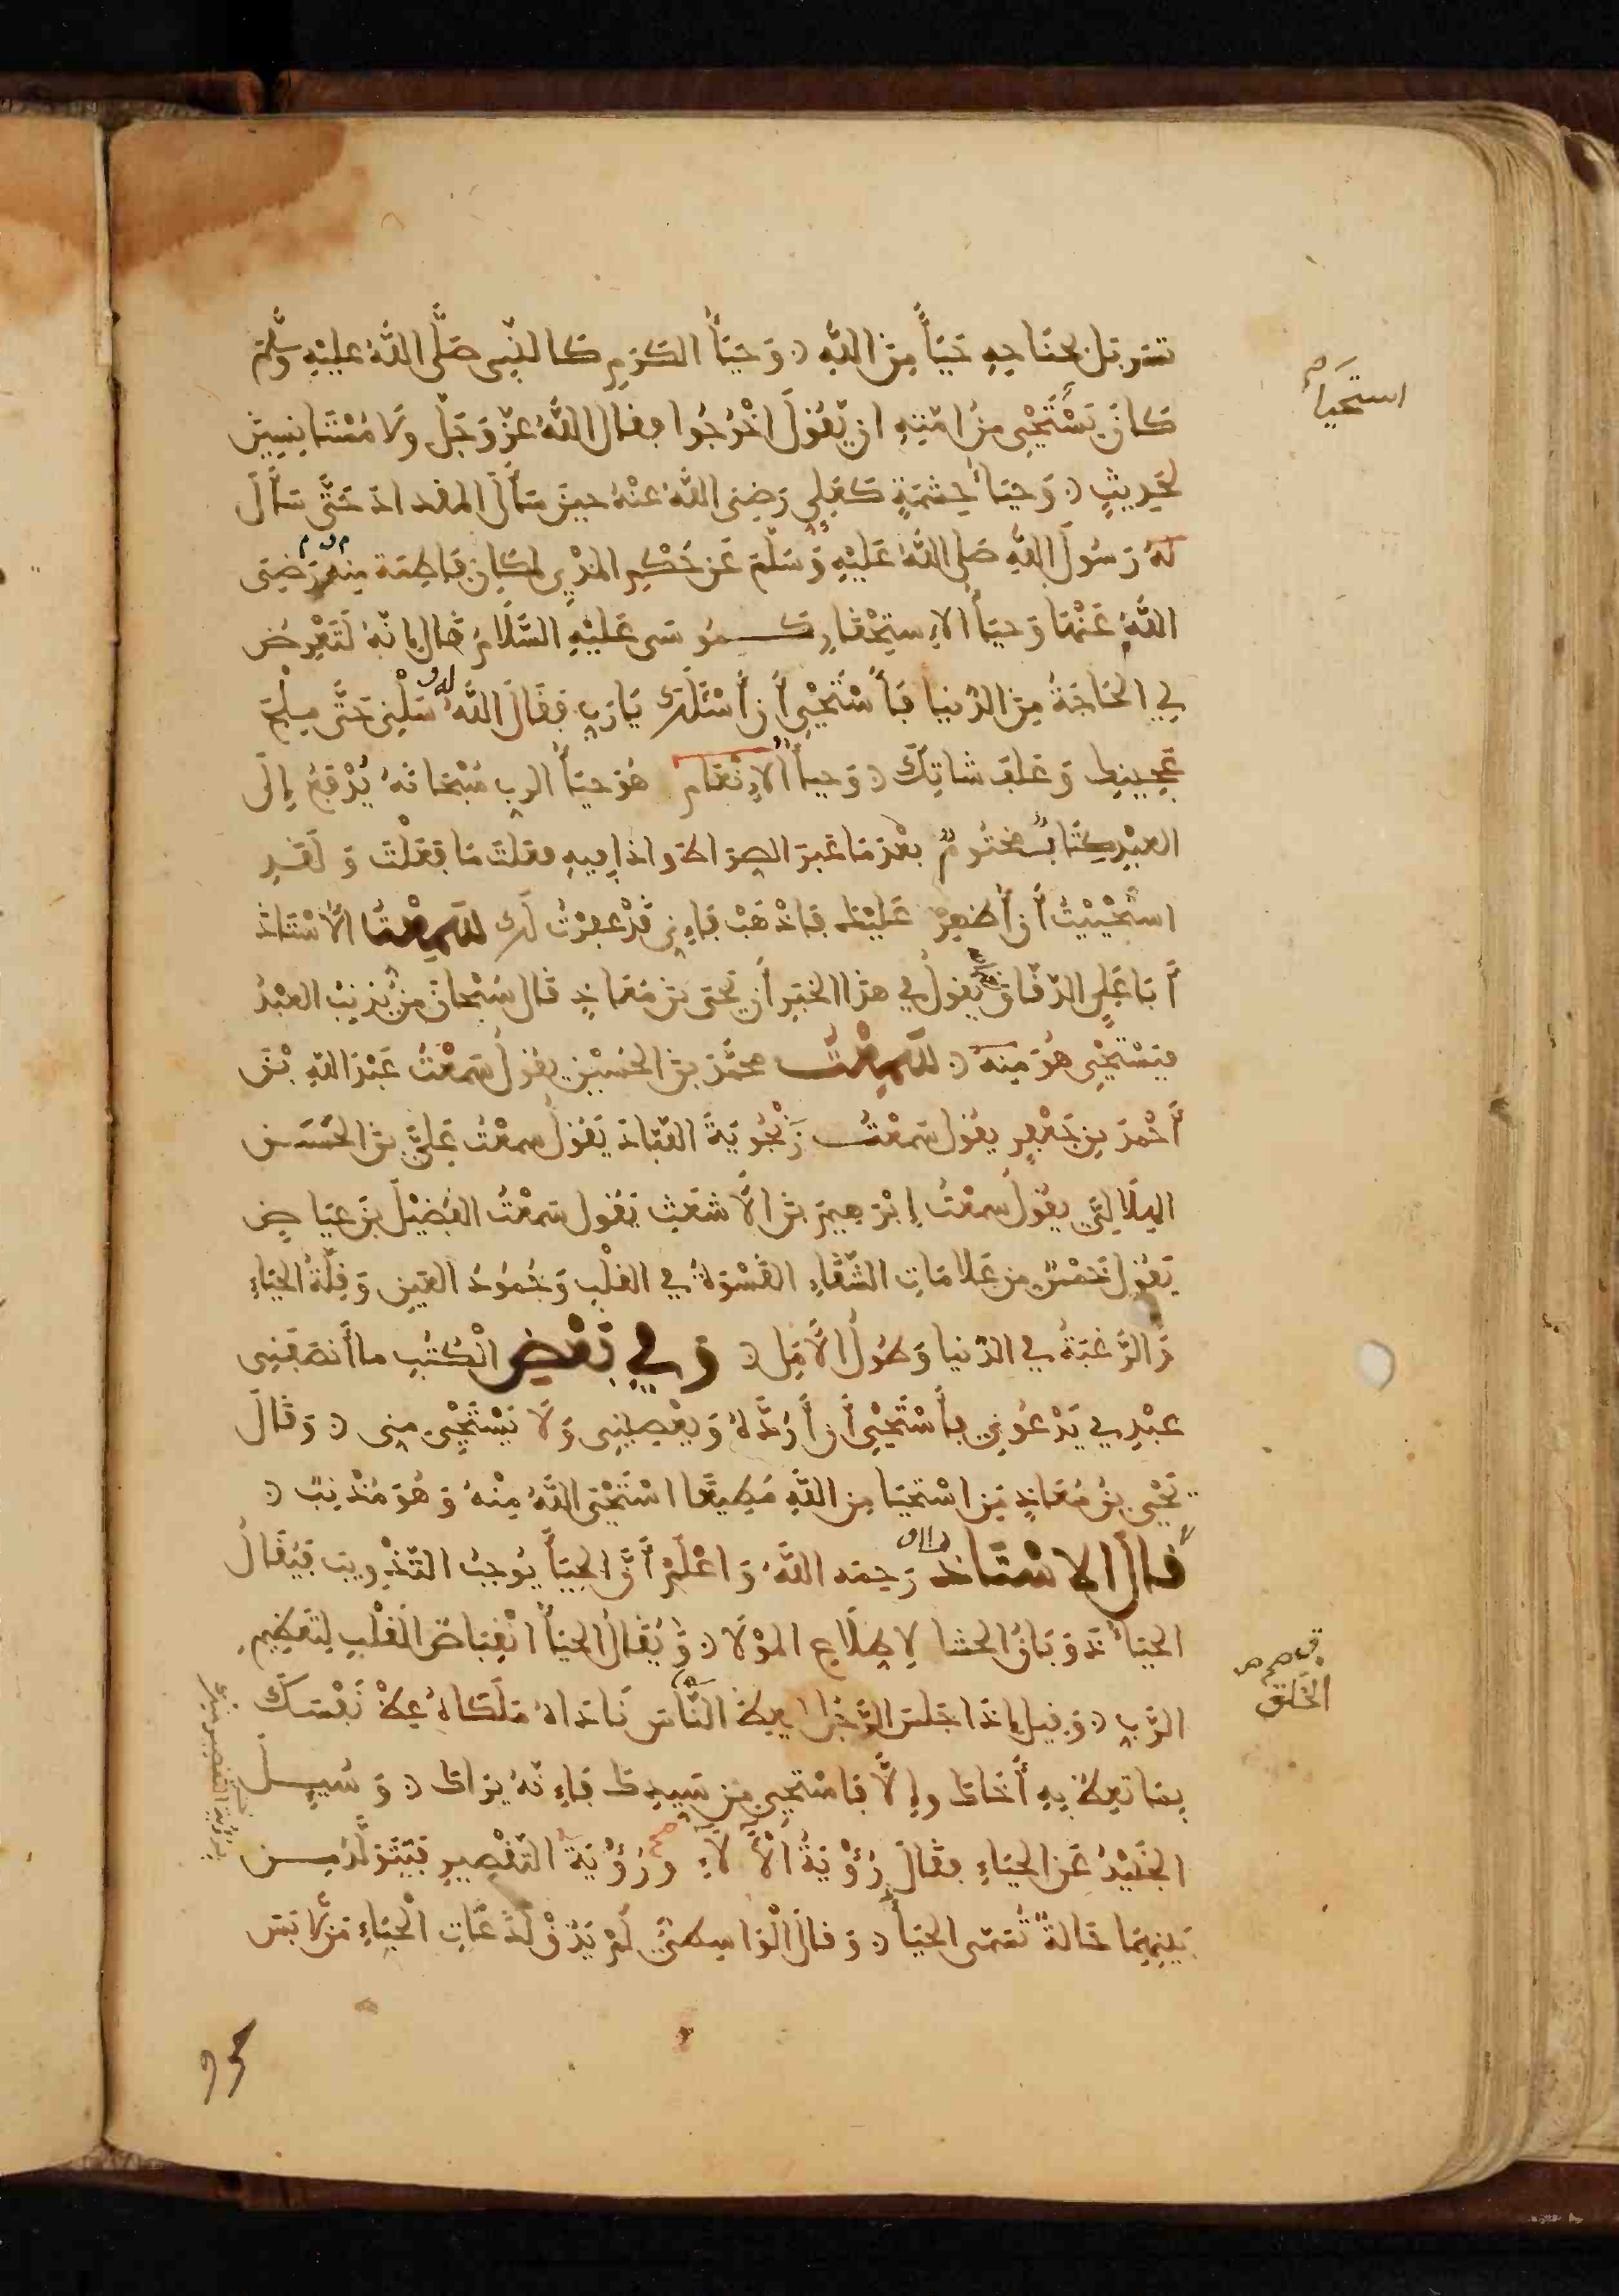 تسربل بجناحه حَيَاءً مِنَ اللَّهِ وَحَيَاءُ الكَرَمِ كَالنَّبِي صَلَّى اللَّهُ عَلَيْهِ وَسَلَّمَ
كَانَ يَسْتَحْيِي مِنْ أُمَّتِهِ ان يَّقُولَ اخْرُجُوا فقال اللَّهُ عَزَّ وَجَلَّ وَلَا مُسْتَانِسِينَ
لِحَدِيثٍ وَحَيَاءُ حِشْمَةٍ كَعَلِي رَضِيَ اللَّهُ عَنْهُ حِينَ سَأَلَ المقداد حَتَّى سَأَلَ
لَهُ رَسُولَ اللَّهِ صَلى اللَّهُ عَلَيْهِ وَسَلَّمَ عَن حُكْمِ المَذْيِ لمَكَانِ فَاطِمَة مِنه رَضِيَ
اللَّهُ عَنْهَا وَحَيَاءُ الاِسْتِحْقَارِ كَمُوسَى عَلَيْهِ السَّلَامُ قَالَ إنّهُ لَتَعْرِضُ
لِي الحَاجَةُ مِنَ الدُّنيَا فَأَسْتَحْيِي أَن أَسْئَلَكَ يَارَبِ فَقَالَ اللَّهُ له سَلْنِي حَتَّى مِلْحَ
عَجِينِكَ وَعَلَفَ شَاتِكَ وَحيَاءُ الاِنْعَامِ هُوَ حَيَاءُ الرب سُبْحَانَهُ يُدْفَعُ إِلَى
العَبْدِ كِتَابٌ مَخْتُومٌ بَعْدَ مَا عَبَرَ الصِّرَاطَ وَاذَا فِيهِ فعَلتَ مَا فَعَلْتَ وَلَقَدِ
اسْتَحْيَيْتُ أَن أُظْهِرَ عَلَيْكَ فَاذْهَبْ فَإِنِّي قَدْ غَفَرْتُ لَكَ سَمِعْتُ الأُسْتَاذَ
أَبَا عَلِي الدَّقَّاقَ يَقُولُ فِي هَذَا الخَبَرِ أَن يَحْيَى بْنَ مُعَاذٍ قَالَ سُبْحَانَ مَن يُّذْنِبُ العَبْدُ
فَيَسْتَحْيِي هُوَ مِنْهُ سَمِعْتُ مُحَمَّدَ بْنَ الحُسَيْنِ يَقُولُ سَمِعْتُ عَبْدَ اللَّهِ بْنَ
أَحْمَدَ بْنِ جَعْفَرٍ يَقُولُ سَمِعْتُ زَنْجُويَةَ اللبَّاذَ يَقُولُ سَمِعْتُ عَلِيَّ بْنَ الحَسَنِ
الهِلَالِيَّ يَقُولُ سَمِعْتُ إبْرَهِيمَ بْنَ الأَشْعَثِ يَقُولُ سَمِعْتُ الفُضَيْلَ بْنَ عِيَاضٍ
يَقُولُ خَمْسٌ مِن عَلَامَاتِ الشَّقَاءِ القَسْوَةُ فِي القَلْبِ وَجُمُودُ العَيْنِ وَقِلَّةُ الحَيَاءِ
وَالرَّغْبَةُ فِي الدُّنيَا وَطُولُ الأَمَلِ وَفِي بَعْضِ الْكُتُبِ مَا أَنصَفَنِي
عَبْدِي يَدْعُونِي فَأَسْتَحْيِي أَن أَرُدَّهُ وَيَعْصِينِي وَلَا يَسْتَحْيِي مِنِّي وَقَالَ
يَحْيَى بْنُ مُعَاذٍ مَنِ اسْتَحْيَا مِنَ اللَّهِ مُطِيعًا اسْتَحْيَى اللَّهُ مِنْهُ وَهُوَ مُذْنِبٌ
قال الاسْتَاذ رَحِمَه اللَّهُ وَاعْلَمْ أَنَّ الحَيَاءَ يُوجِبُ التَّذْوِيبَ فَيُقَالُ
الحَيَاءُ ذَوَبَانُ الحَشَا لِاطِّلَاعِ المَوْلَا وَيُقَالُ الحَيَاءُ انْقِبَاضُ القَلْبِ لِتَعْظِيمِ
الرَّبِ وَقِيلَ إِذَا جَلَسَ الرَّجُلُ لِيَعِظَ النَّاسَ نَادَاهُ مَلَكَاهُ عِظْ نَفْسَكَ
بِمَا تَعِظُ بِهِ أَخَاكَ وَإِلَّا فَاسْتَحْيِ مِن سَيِّدِكَ فَإِنَّهُ يَرَاكَ وَسُيِلَ
الجُنَيْدُ عَنِ الحَيَاءِ فَقَالَ رُؤْيَةُ الآلَاءِ وَرُؤْيَةُ التَّقْصِيرِ فَيَتَوَلَّدُ مِن
بَيْنِهِمَا حَالَةٌ تُسَمَّى الحَيَاءَ وَقَالَ الْوَاسِطِيُّ لَمْ يَذُقْ لَذَعَاتِ الْحَيَاءِ مَن لَابَسَ
استحيا
الخلق